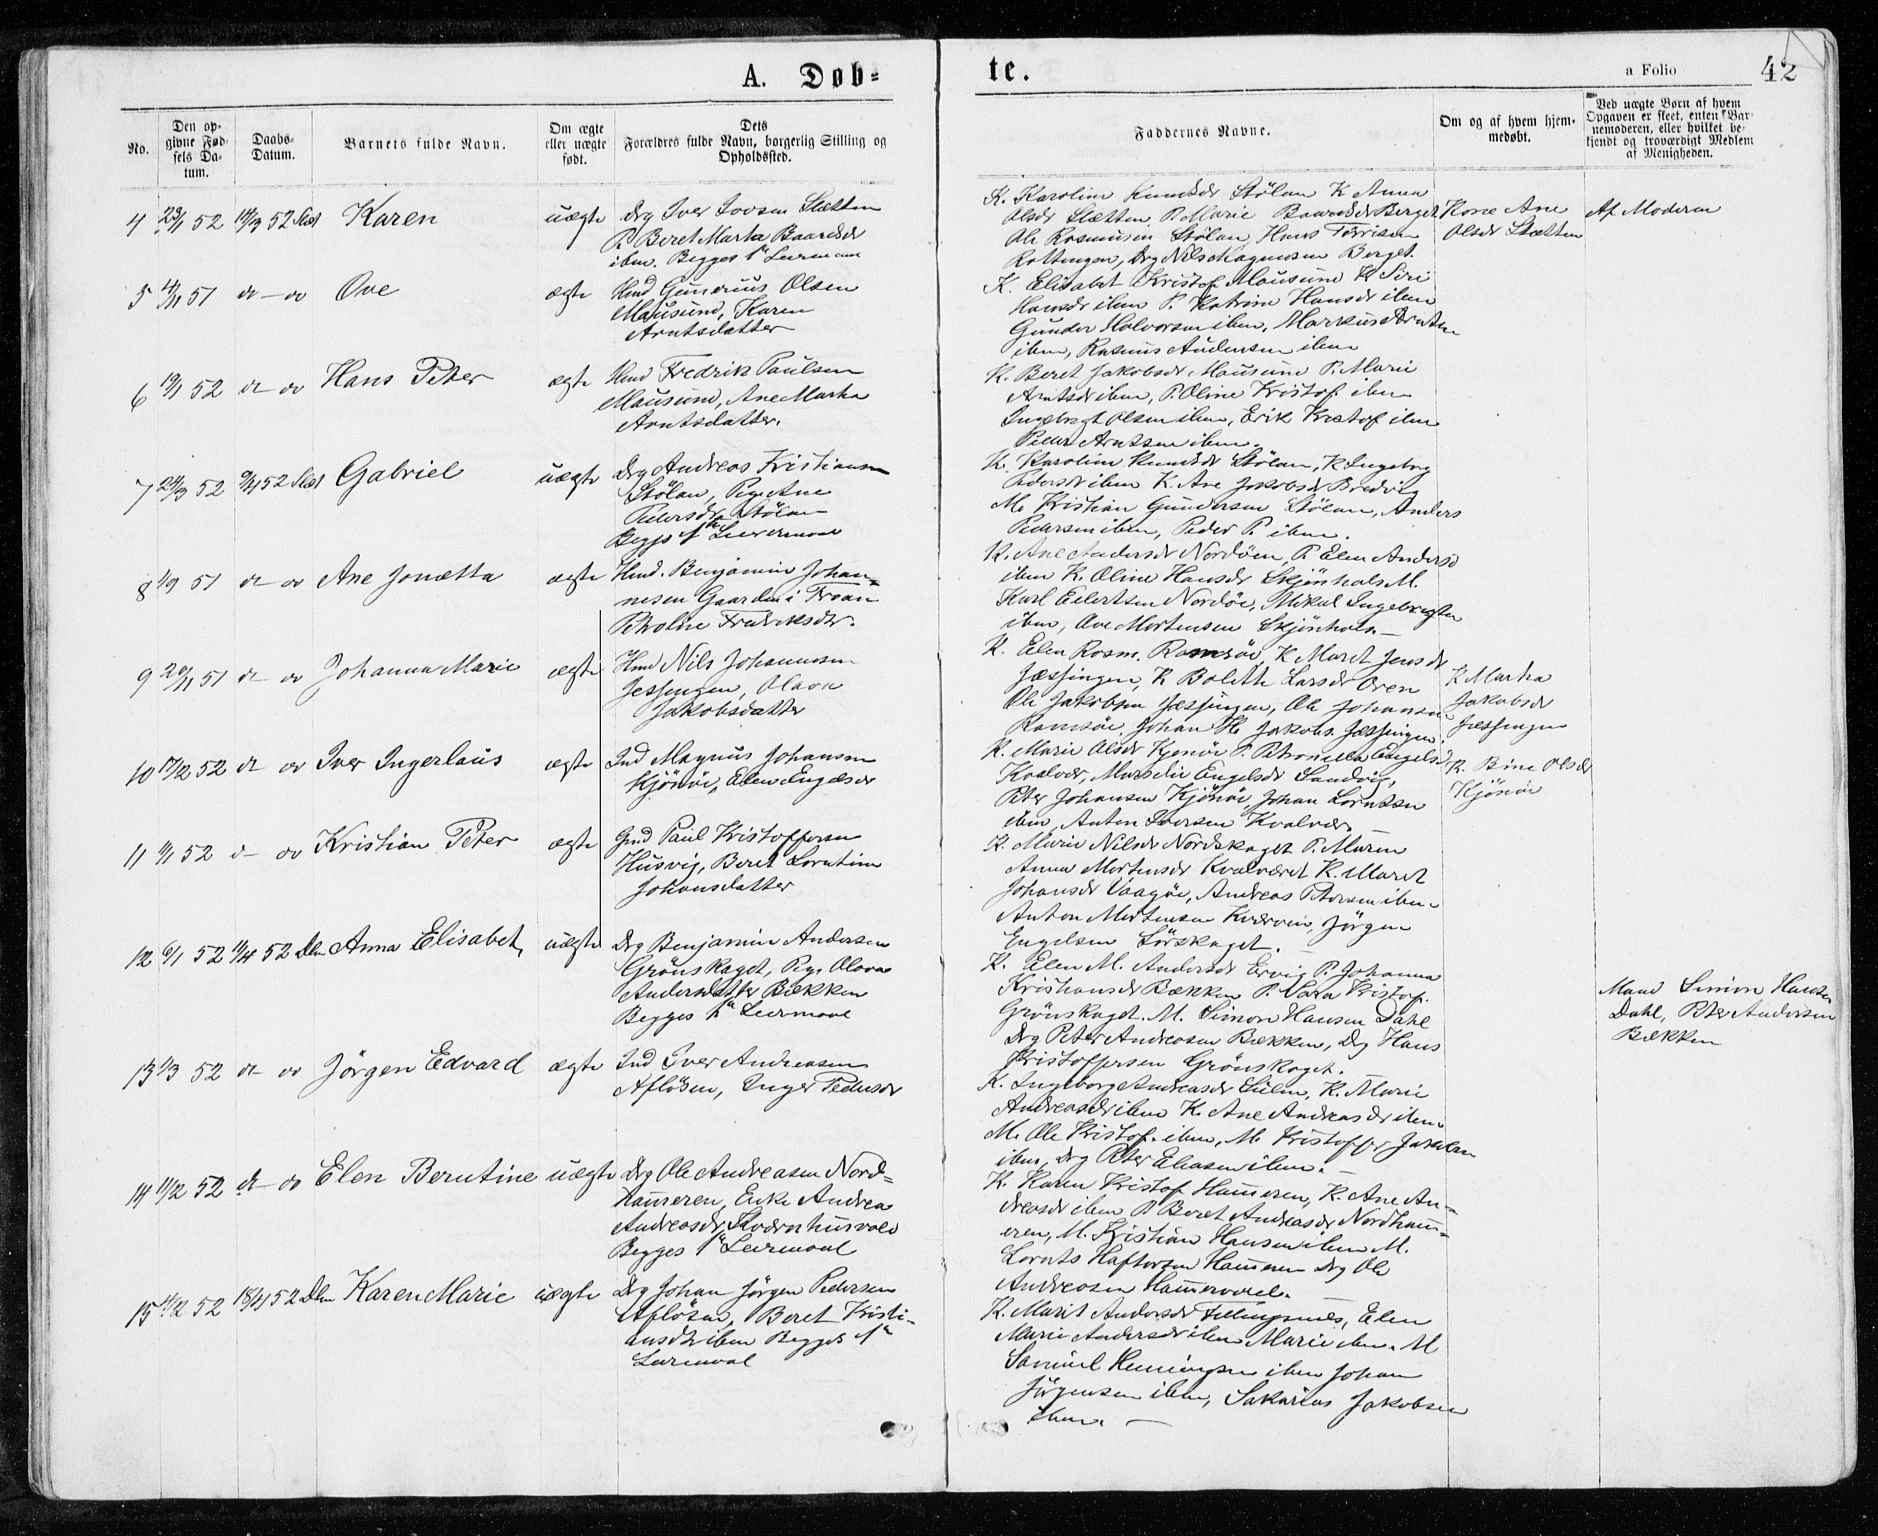 A. Døb-
te.
a Folio
42
No.
Den op-
givne Fød-
sels Da-
tum.
Daabs-
Datum.
Barnets fulde Navn.
Om ægte
eller uægte
født.
Dets
Forældres fulde Navn, borgerlig Stilling og
Opholdssted.
Faddernes Navne.
Om og af hvem hjem-
medøbt.
Ved uægte Børn af hvem
Opgaven er skeet, enten Bar-
nemoderen, eller hvilket be-
kjendt og troværdigt Medlem
af Menigheden.
4 23/1 52 14/3 52 Karen uægte
Drg Iver Iversen Slætten
P. Beret Marta Baardsdr
ibm. Begges 1ste Leierm
K. Karolina Knudsdr Stølan K Anna
Olsdr Slætten P. Marie Baardsdr Berget
Ole Rasmusen Stølan, Hans
Drg Nils Magnusen Berget.
Kone Ane
Olsdr Slætten
Af Moderen
5 51 d- do Ove ægte
Hmd Gunerius Olsen
Mausund, Karen
Arntsdatter
K. Elisabet Kristof. Mausund K Siri
Hansdr ibm P. Katrine Hansdr ibm
Gunder Halvorsen ibm, Markus Arntsen
ibm, Rasmus Andersen ibm
6 19/1 52 d- do Hans Peter ægte
Hmd Fredrik Paulsen
Mausund, Ane Marta
Arntsdatter.
K. Beret Jakobsdr Mausund P. Marie
Arntsdr ibm, P. Oline Kristof. ibm
Ingebregt Olsen ibm, Erik Kristof ibm
Peder Arntsen ibm.
7 24/3 52 9/4 52 Gabriel uægte
Drg Andreas Kristiansen
Stølan, Pige Ane
Pedersdr Stølan
Begges 1ste Leiermaal
K. Karolina Knudsdr Stølan, K Ingeborg
Pedersdr ibm K. Ane Jakobsdr Bredvig
M. Kristian Gundersen Stølan, Anders
Pedersen ibm, Peder P. ibm.
8 1/9 51 d- do Ane Jonetta ægte
Hmd. Benjamin Johan-
nesen Gaarden i Froan
Petroline Fredriksdr.
K. Ane Andersdr Nordøen, P. Elen Andersd
ibm K. Oline Hansdr Skjönhals M.
Karl Eilertsen Nordøe, Mikal Ingebregtsen
ibm, Ove Mortensen Skjönhals.
9 51 d- do Johanna Marie ægte
Hmd Nils Johannsen
Jessingen, Olava
Jakobsdatter
K. Elen Rasm. Ramsöe, K Maret Jensdr
Jæssingen, K Bolette Larsdr Oren
Ole Jakobsen Jæssingen, Ole Johansen
Ramsöe, Johan H. Jakobs. Jæssingen
K Marta
Jakobsdr
Jæssingen
10 17/2 52 d- do Iver Ingerlaus ægte
Ind Magnus Johansen
Kjönöe, Elen Engelsdr
K. Marie Olsdr Kjønöe P. Petronella Engelsd
Kvalvær, Marselie Engelsdr Sandvig,
Peter Johansen Kjönöe, Johan Lorntsen
ibm, Anton Iversen Kvalvær.
K. Bine Olsdr
Kjönöe
11 52 d- do Kristian Peter ægte
Gmd Paul Kristoffersen
Husvig, Beret Lorntine
Johansdatter
K. Marie Nilsdr Nordskaget P. Maren
Anna Mortensdr Kvalværet K. Maret
Johansdr Vaagöe, Andreas Petersen ibm
Anton Mortensen Kværvin, Jörgen
Engelsen Sörskaget.
12 6/1 52 11/4 52 Dln Anna Elisabet, uægte
Drg Benjamin Andersen
Grönskaget, Pige Olava
Andersdatter Bækken
Begges 1ste Leiermaal
K. Elen M. Andersdr Ervig P. Johanna
Kristiansdr Bækken P. Sara Kristof.
Grönskaget. M. Simon Hansen Dahl
Drg Peter Andreasen Bækken, Drg Hans
Kristoffersen Grönskaget.
Mand Simon Hansen
Dahl, Peter Andersen
Bækken
13 1/3 52 d- do Jörgen Edvard ægte
Ind Iver Andreasen
Aflösen, Inger Pedersdr
K. Ingeborg Andreasdr Stilen, K. Marie
Andreasdr ibm K. Ane Andreasdr ibm
M. Ole Kristof. ibm, M. Kristoffer Jakobsen
ibm, Drg Peter Eliasen ibm.
14 11/2 52 d- do Elen Berntine uægte
Drg Ole Andreasen Nord-
hammeren, Enke Andrea
Andreasdr Storhusvold
Begges 1ste Leiermaal
K. Karen Kristof Hammeren, K. Ane An-
dreasdr ibm P Beret Andreasdr Nordham-
eren, M. Kristian Hansen ibm M.
Lornts Haftorsen Hammeren Drg Ole
Andreasen Hammervold.
15 11/2 52 18/4 52 Dln Karen Marie uægte
Drg Johan Jörgen Pedersen
Aflösen, Beret Kristi-
ansdtr ibm Begges 1ste
Leiermaal
K. Marit Andersdr Fillingsnes, Elen
Marie Andersdr ibm Marie ibm. M
Samuel Henningsen ibm Johan
Jörgensen ibm, Sakarias Jakobsen
ibm.